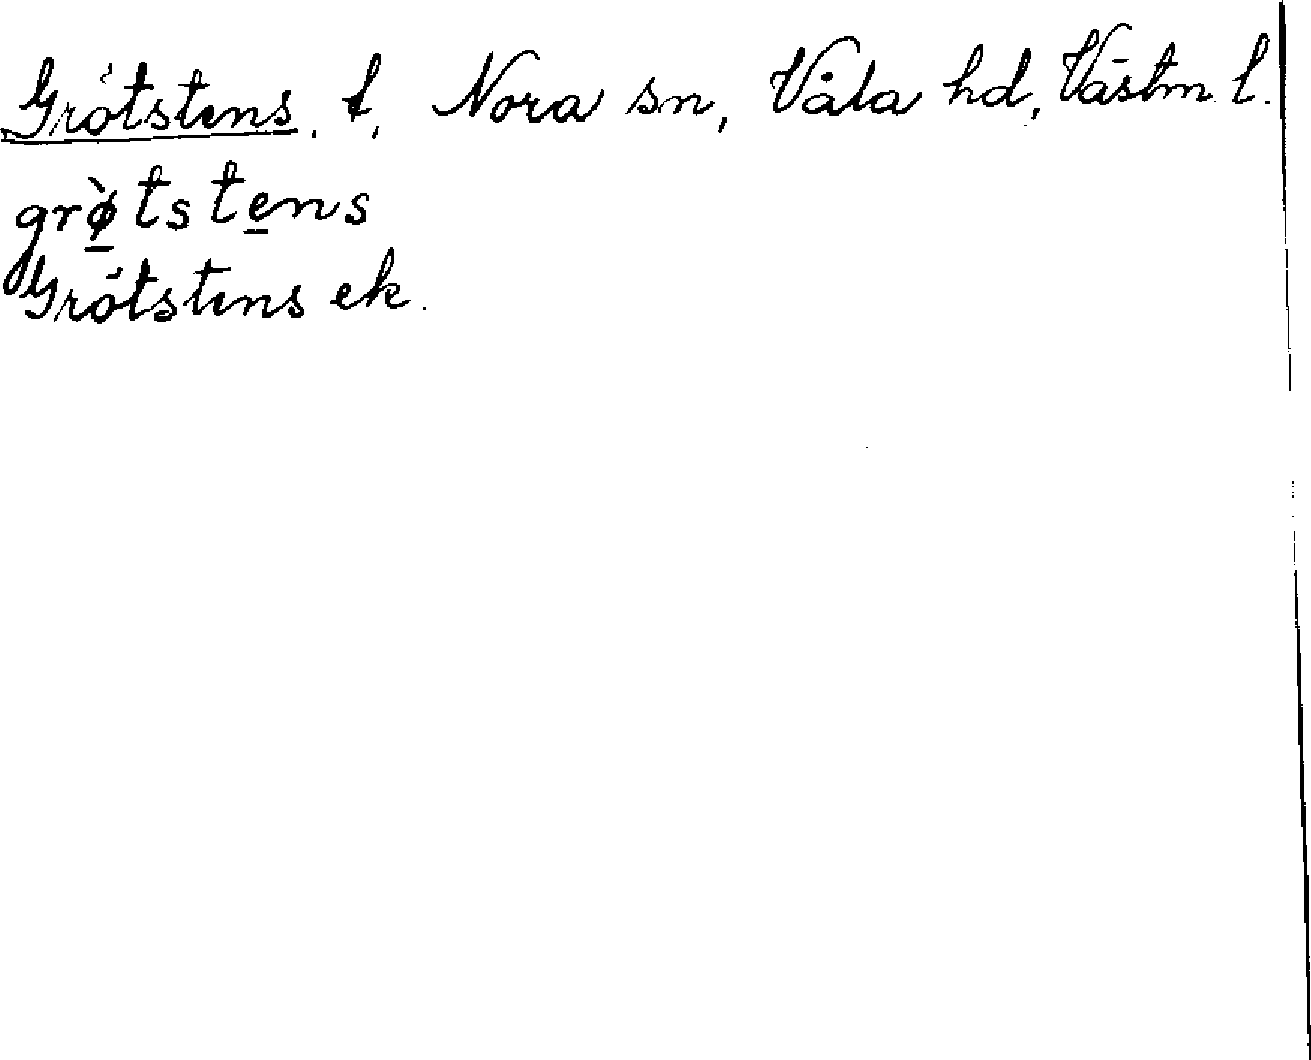 Grötstens, t, Nora sn, Våla hd, Västm l.
grø̀tstens
Grötstens ek.